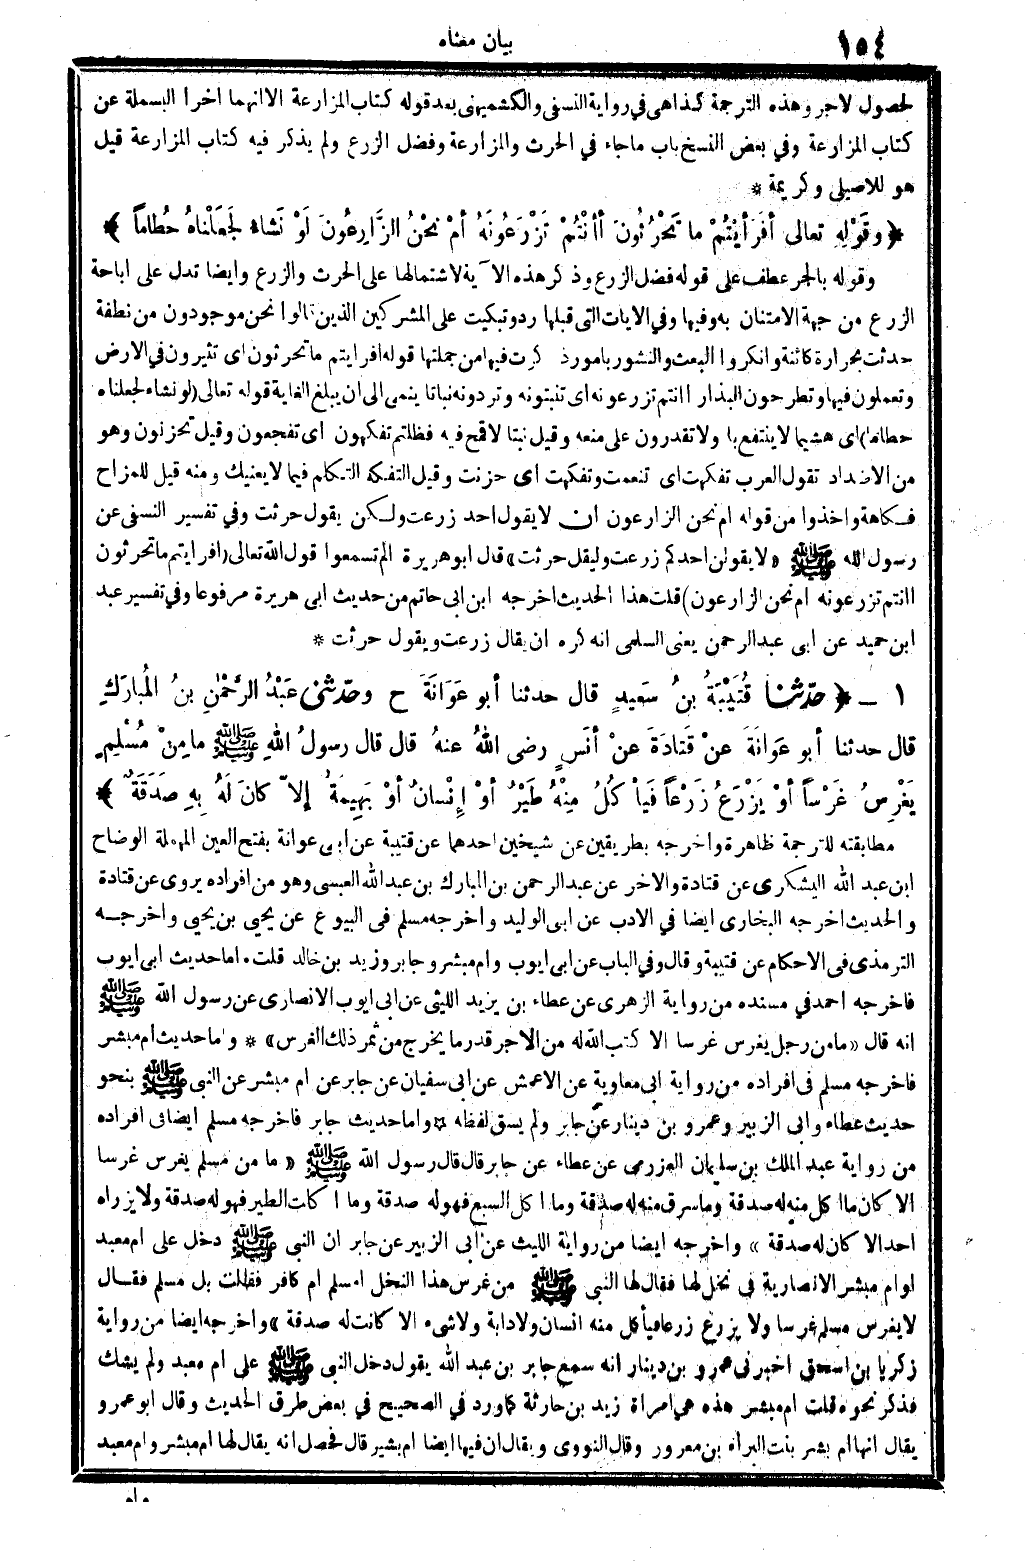 ١٥٤
بيان معناه
لحصول لاجر وهذه الترجمة كذاهى في رواية النسفى والكشميهنى بعد قوله كتاب المزارعة الاانهما اخرا البسملة عن
كتاب المزارعة وفي بعض النسخ باب ماجاء في الحرث والمزارعة وفضل الزرع ولم يذكر فيه كتاب المزارعة قيل
هو للاصيلى وكريمة *
﴿ وقَوْلِهِ تعالى أفَرَأيْتُمْ ما تَحْرُثُونَ أأنْتُمْ تَزْرَعُونَهُ أمْ نَحْنُ الزَّارِعُونَ لَوْ نَشاءُ لَجَعَلْناهُ حُطاماً ﴾
وقوله بالجر عطف على قوله فضل الزرع وذكر هذه الآية لاشتمالها على الحرث والزرع وايضا تدل على اباحة
الزرع من جهة الامتنان به وفيها وفي الايات التى قبلها رد وتبكيت على المشركين الذين قالوا نحن موجودون من نطفة
حدثت بحرارة كائنة وانكروا البعث والنشور بامور ذكرت فيها من جملتها قوله افرايتم ماتحرثون اى تثيرون في الارض
وتعملون فيها وتطرحون البذار اانتم تزرعونه اى تنبتونه وتردونه نباتا ينمى الى ان يبلغ الغاية قوله تعالى (لو نشاء لجعلناه
حطاما) اى هشيما لاينتفع بها ولاتقدرون على منعه وقيل نبتا لاقمح فيه فظلتم تفكهون اى تفجعون وقيل تحزنون وهو
من الاضداد تقول العرب تفكهت اى تنعمت وتفكهت اى حزنت وقيل التفكه التكلم فيما لايعنيك ومنه قيل للمزاح
فكاهة واخذوا من قوله ام نحن الزارعون ان لايقول احد زرعت ولكن يقول حرثت وفي تفسير النسفى عن
رسول الله ﷺ «لا يقولن احدكم زرعت وليقل حرثت» قال ابو هريرة الم تسمعوا قول الله تعالى (افرايتم ماتحرثون
اانتم تزرعونه ام نحن الزارعون) قلت هذا الحديث اخرجه ابن ابى حاتم من حديث ابى هريرة مرفوعا وفي تفسير عبد
ابن حميد عن ابى عبدالرحمن يعنى السلمى انه كره ان يقال زرعت ويقول حرثت *
١ ــ ﴿ حدّثنا قُتَيْبَةُ بنُ سَعِيدٍ قال حدثنا أبو عَوَانَةَ ح وحدّثنى عَبْدُ الرَّحْمٰنِ بنُ المُبارَكِ
قال حدثنا أبو عَوانَةَ عنْ قَتادَةَ عنْ أنَسٍ رضى اللهُ عنهُ قال قال رسولُ اللهِ ﷺ ما مِنْ مُسْلِمٍ
يَغْرِسُ غَرْساً أوْ يَزْرَعُ زَرْعاً فَيَأْكُلُ مِنْهُ طَيْرٌ أوْ إنْسانٌ أوْ بَهِيمَةٌ إلاّ كانَ لَهُ بِهِ صَدَقَةٌ ﴾
مطابقته للترجمة ظاهرة واخرجه بطريقين عن شيخين احدهما عن قتيبة عن ابى عوانة بفتح العين المهملة الوضاح
ابن عبد الله اليشكرى عن قتادة والاخر عن عبدالرحمن بن المبارك بن عبدالله العبسى وهو من افراده يروى عن قتادة
والحديث اخرجه البخارى ايضا في الادب عن ابى الوليد واخرجه مسلم فى البيوع عن يحيى بن يحيى واخرجه
الترمذى فى الاحكام عن قتيبة وقال وفي الباب عن ابى ايوب وام مبشر وجابر وزيد بن خالد قلت . اما حديث ابى ايوب
فاخرجه احمد في مسنده من رواية الزهرى عن عطاء بن يزيد الليثى عن ابى ايوب الانصارى عن رسول الله ﷺ
انه قال «مامن رجل يغرس غرسا الا كتب الله له من الاجر قدر ما يخرج من ثمر ذلك الغرس» * واما حديث ام مبشر
فاخرجه مسلم فى افراده من رواية ابى معاوية عن الاعمش عن ابى سفيان عن جابر عن ام مبشر عن النبى ﷺ بنحو
حديث عطاء وابى الزبير وعمرو بن دينار عن جابر ولم يسق لفظه * واما حديث جابر فاخرجه مسلم ايضا فى افراده
من رواية عبد الملك بن سليمان العزرمى عن عطاء عن جابر قال قال رسول الله ﷺ « ما من مسلم يغرس غرسا
الا كان ما اكل منه له صدقة وماسرق منه له صدقة وما اكل السبع فهو له صدقة وما اكلت الطير فهو له صدقة ولا يزراه
احد الا كان له صدقة » واخرجه ايضا من رواية الليث عن ابى الزبير عن جابر ان النبى ﷺ دخل على ام معبد
او ام مبشر الانصارية في نخل لها فقال لها النبى ﷺ من غرس هذا النخل امسلم ام كافر فقالت بل مسلم فقال
لايغرس مسلم غرسا ولا يزرع زرعا فيأكل منه انسان ولا دابة ولاشىء الا كانت له صدقة » واخرجه ايضا من رواية
زكريا بن اسحق اخبرنى عمرو بن دينار انه سمع جابر بن عبد الله يقول دخل النبى ﷺ على ام معبد ولم يشك
فذكر نحوه قلت ام مبشر هذه هى امراة زيد بن حارثة كما ورد في الصحيح في بعض طرق الحديث وقال ابو عمرو
يقال انها ام بشر بنت البراء بن معرور وقال النووى ويقال ان فيها ايضا ام بشير قال فحصل انه يقال لها ام مبشر وام معبد
وام